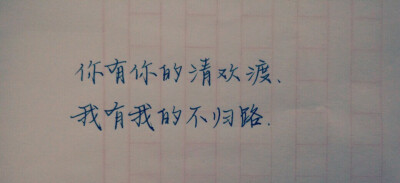 你有你的清欢渡、
我有我的不归路.